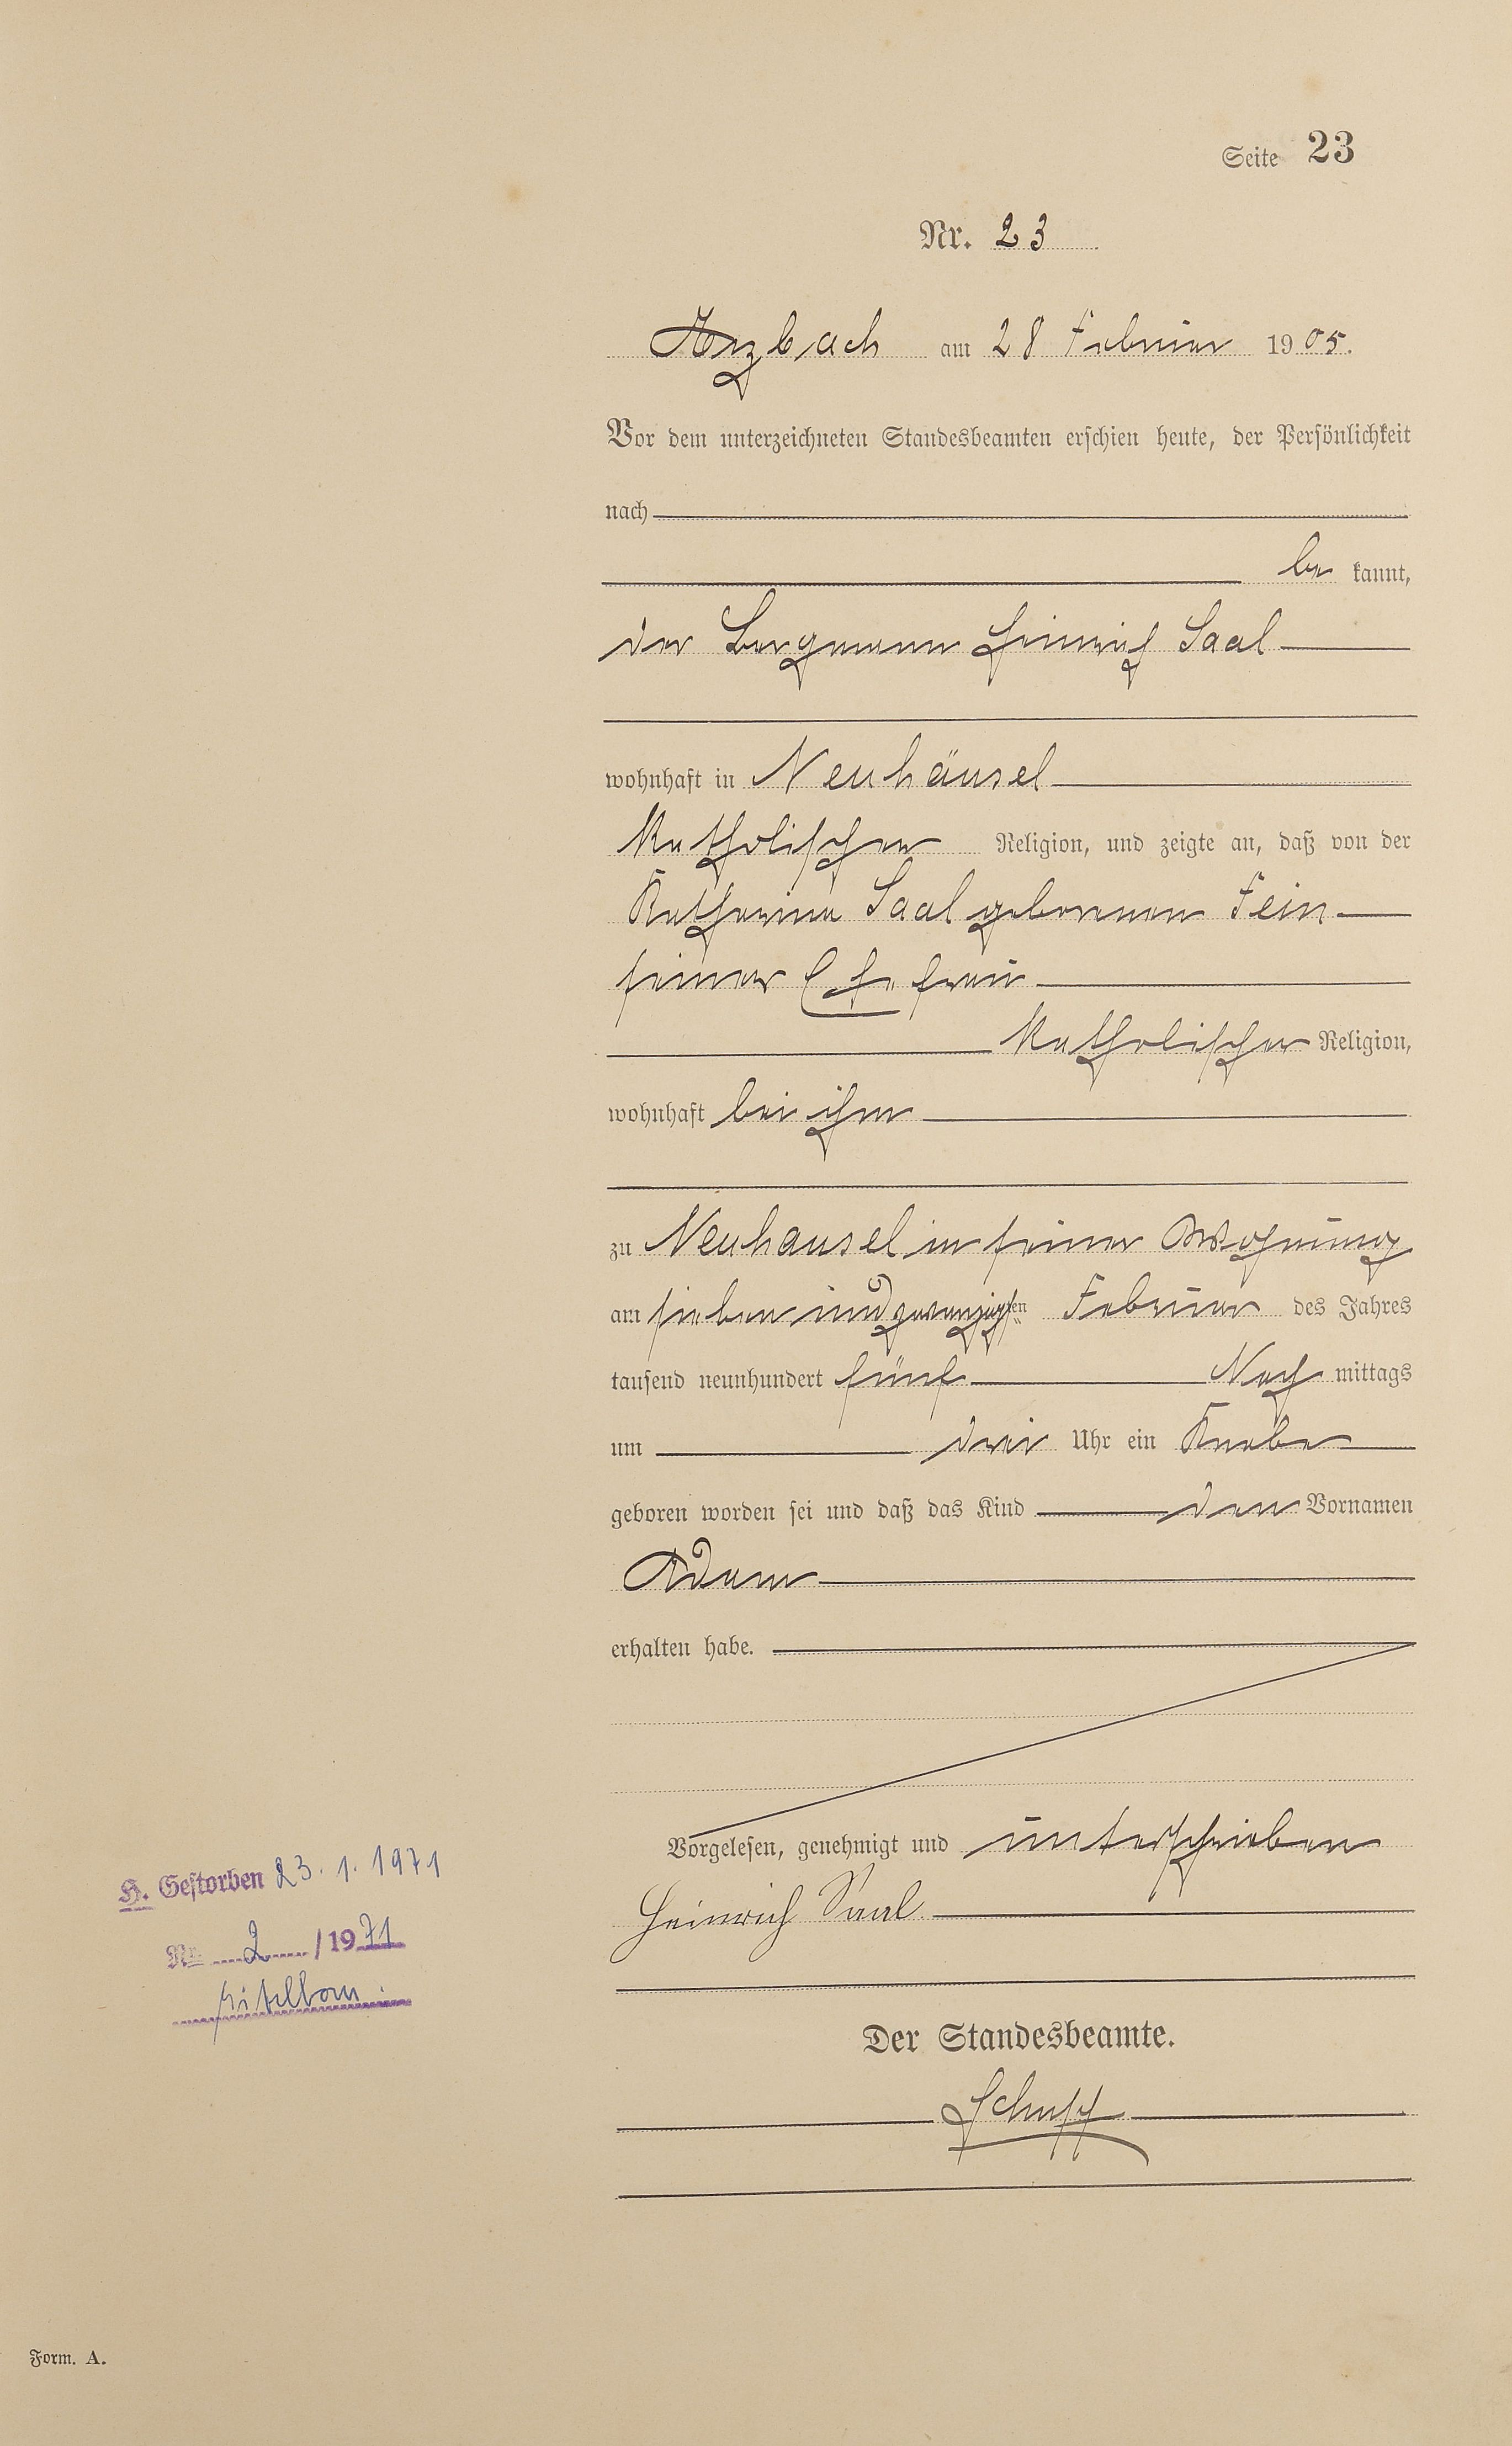 Seite 23
Nr. 23
Arzbach am 28 Februar 1905.
Vor dem unterzeichneten Standesbeamten erschien heute, der Persönlichkeit
nach
be kannt,
der Bergmann Heinrich Saal
wohnhaft in Neuhäusel
katholischer Religion, und zeigte an, daß von der
Katharina Saal geborenen Fein
seiner Ehefrau
katholischer Religion,
wohnhaft bei ihm
zu Neuhausel in seiner Wohnung
am sieben und zwanzigsten Februar des Jahres
tausend neunhundert fünf Nach mittags
um drei Uhr ein Knabe
geboren worden sei und daß das Kind den Vornamen
Adam
erhalten habe.
Vorgelesen, genehmigt und unterschrieben
Heinrich Saal
Der Standesbeamte.
Schupp
H. Gestorben 23. 1. 1971
Nr. 2 / 1971
Eitelborn
Form. A.